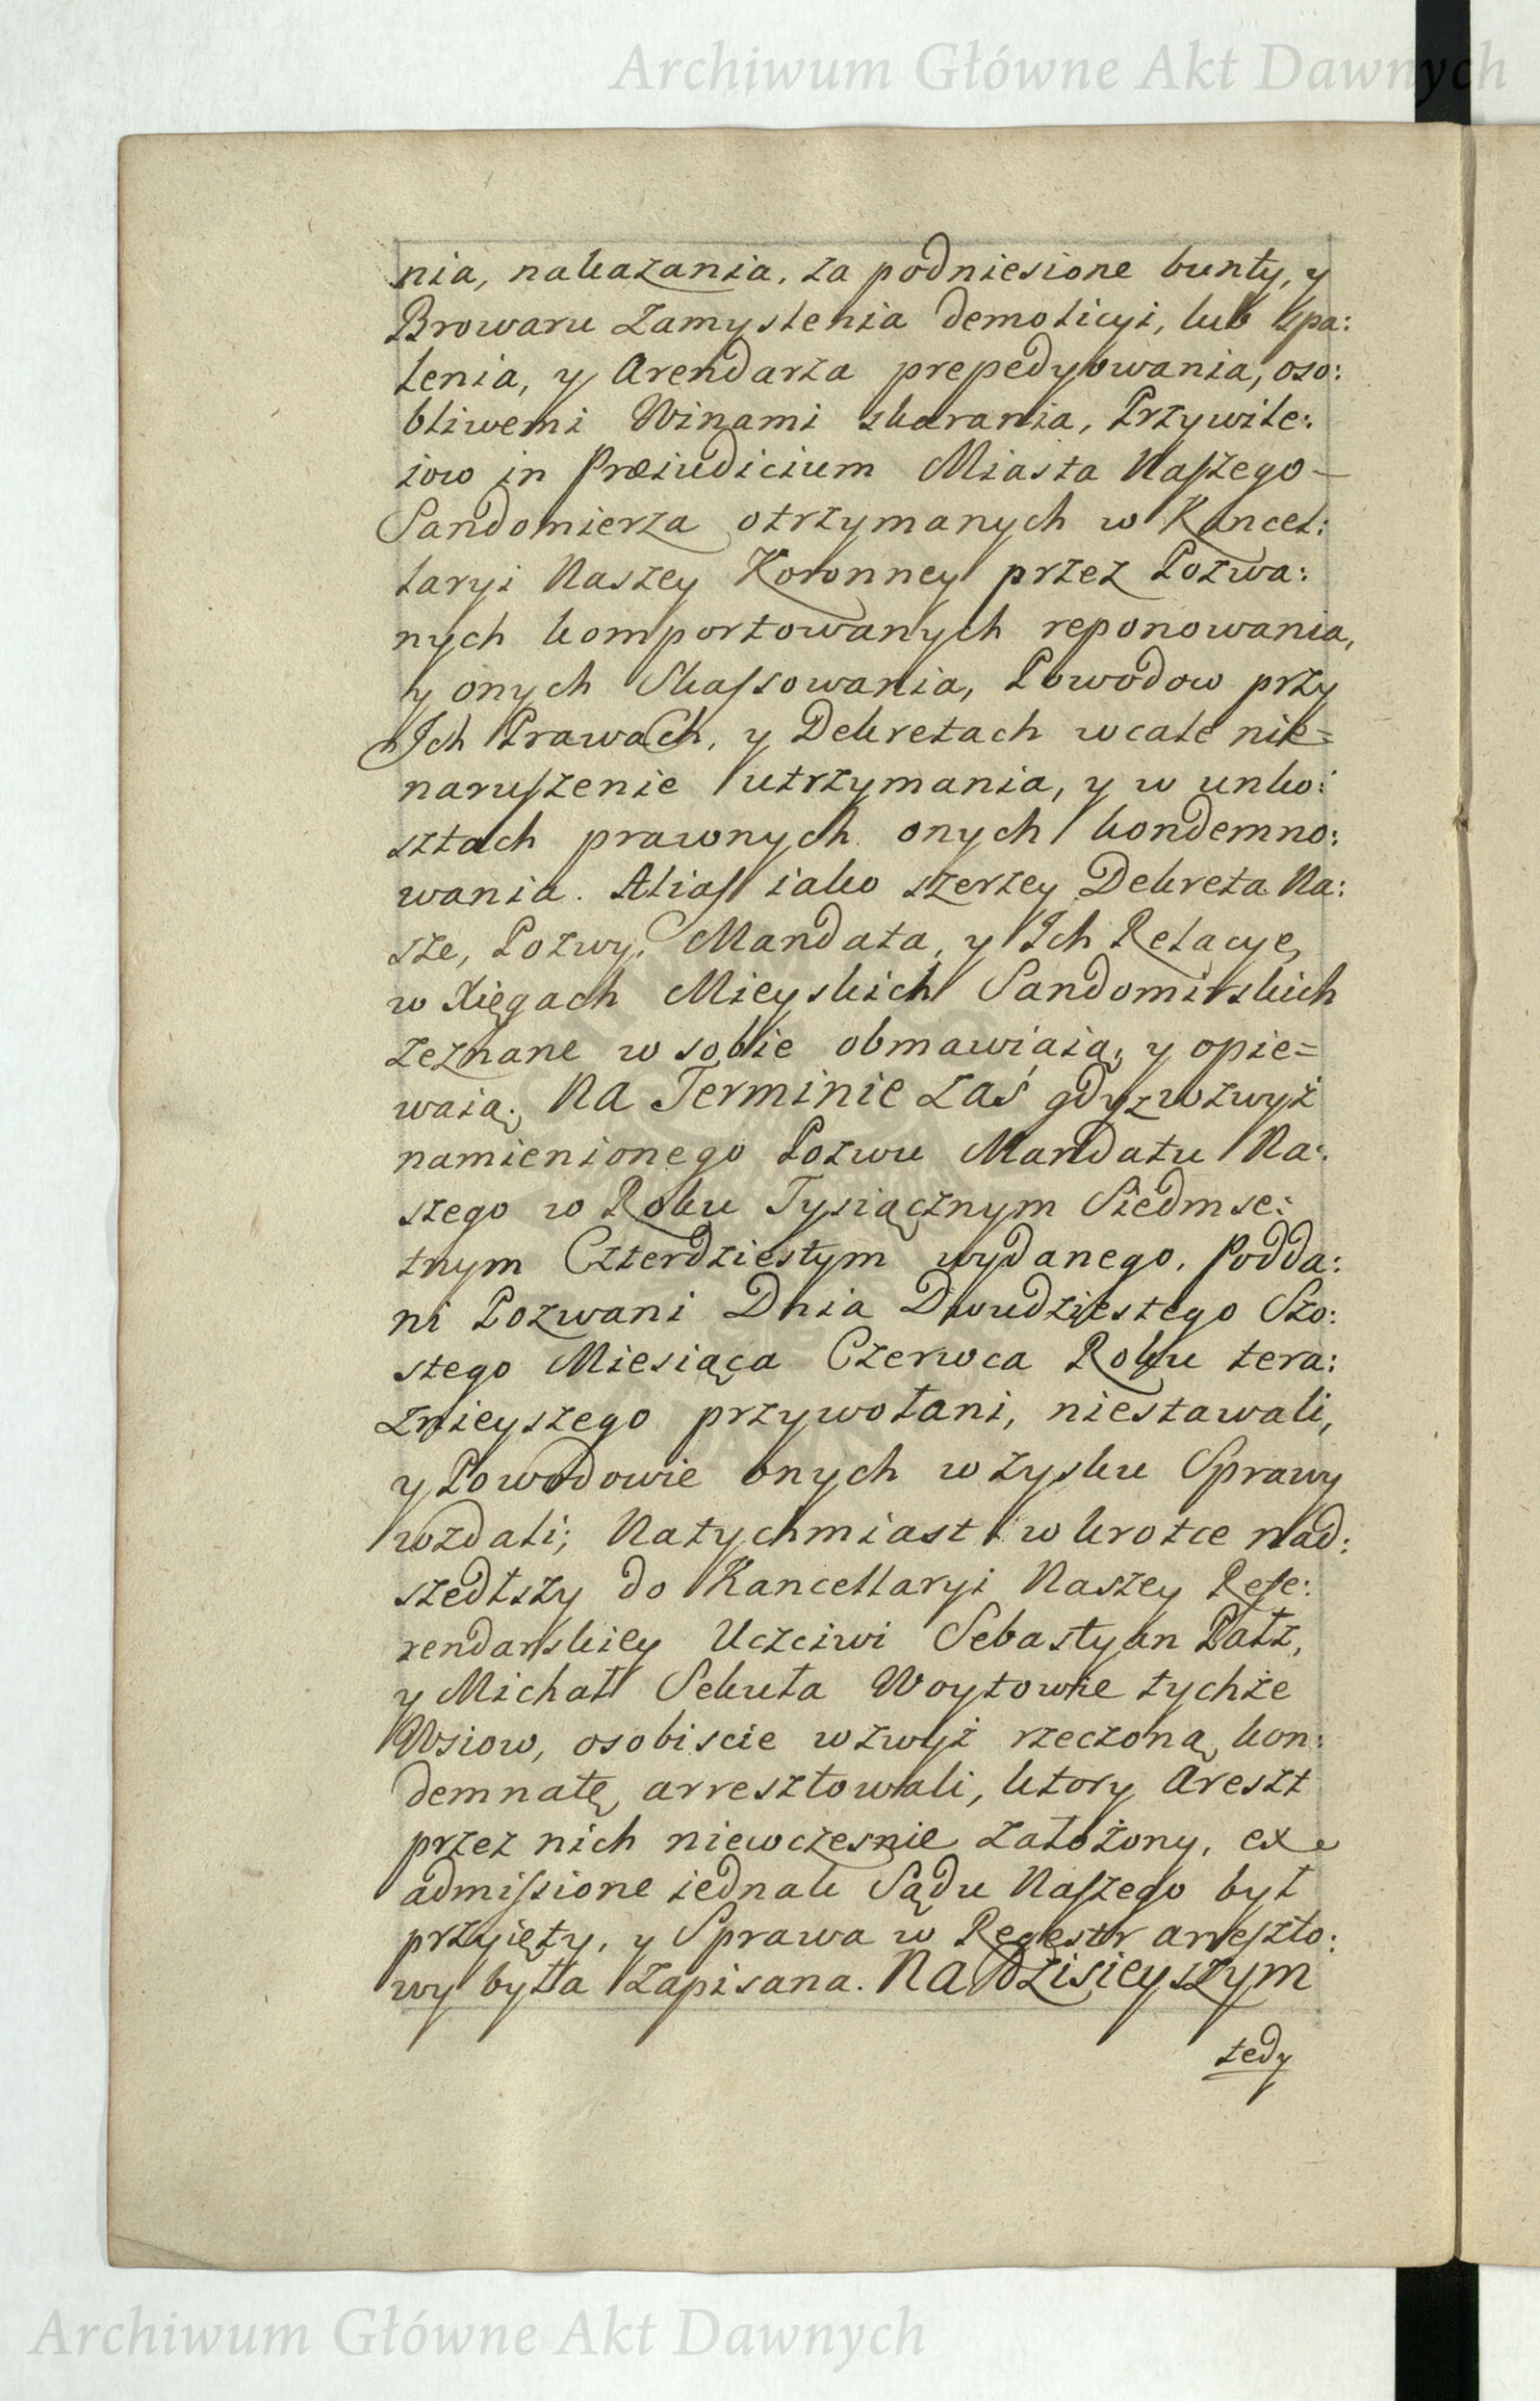 Archiwum Główne Akt Dawnych
nia, nakazania, za podniesione bunty, y
Browaru zamyslenia demolicyi, lub spa:
lenia, y Arendarza prepedyowania, oso:
bliwemi Winami skarania, Przywile:
iow in Præiudicium Miasta Naszego —
Sandomierza otrzymanych w Kancel:
laryi Naszey Koronney przez Pozwa:
nych komportowanych reponowania,
y onych Skassowania, Powodow przy
Ich Prawach, y Dekretach wcale nie=
naruszenie utrzymania, y w unko:
sztach prawnych onych kondemno:
wania. Alias iako szerzey Dekreta Na:
sze, Pozwy, Mandata, y Ich Relacye,
w Xięgach Mieyskich Sandomirskich
zeznane w sobie obmawiaią, y opie=
waią. Na Terminie zaś gdy z wzwyż
namienionego Pozwu Mandatu Na:
szego w Roku Tysiącznym Siedmse:
tnym Czterdziestym wydanego, Podda:
ni Pozwani Dnia Dwudziestego Szo:
stego Miesiąca Czerwca Roku tera:
znieyszego przywołani, niestawali,
y Powodowie onych w zysku Sprawy
wzdali; Natychmiast w krotce nad:
szedłszy do Kancellaryi Naszey Refe:
rendarskiey Uczciwi Sebastyan Pałz,
y Michał Sekuła Woytowie tychże
Wsiow, osobiscie wzwyż rzeczoną kon:
demnatę arresztowali, ktory Areszt
przez nich niewczesnie założony, ex
admissione iednak Sądu Naszego był
przyięty, y Sprawa w Regestr arreszto:
wy była zapisana. Na Dzisieyszym
tedy
Archiwum Główne Akt Dawnych